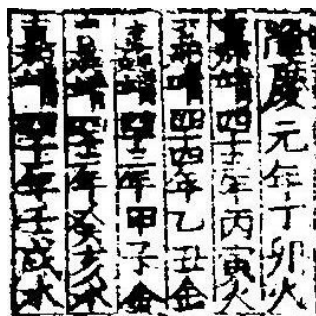 隆慶元年丁卯火
嘉靖四十五年丙寅火
嘉靖四十四年乙丑金
嘉靖四十三年甲子金
嘉靖四十二年癸亥水
嘉靖四十一年壬戌水